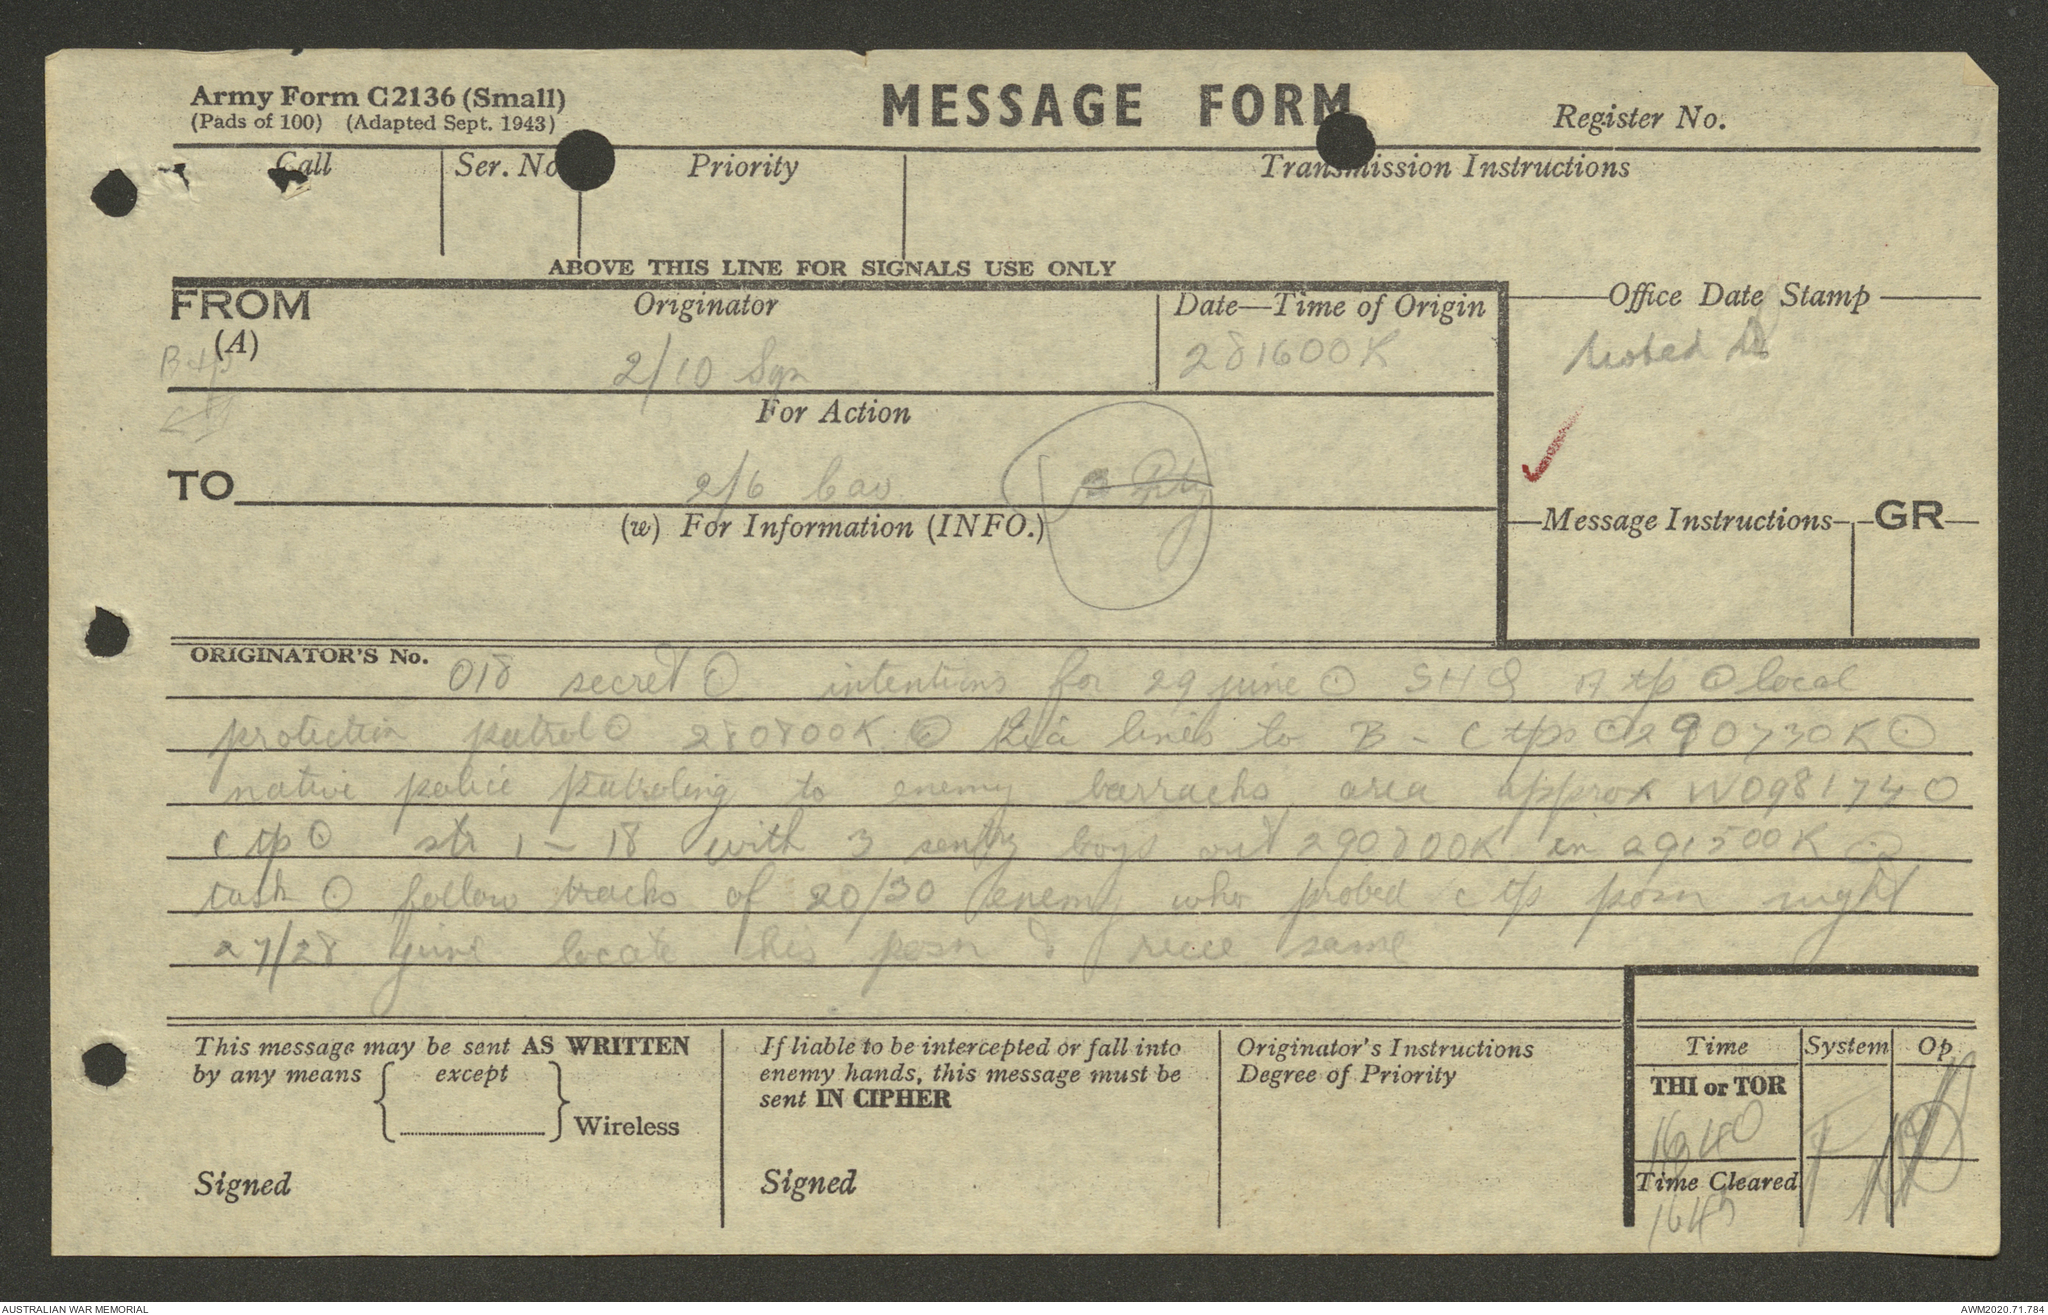 Army Form C2136 (Small)
(Pads of 100) (Adapted Sept. 1943)
MESSAGE FORM
Register No.
Call
Ser. No
Priority
Transmission Instructions
ABOVE THIS LINE FOR SIGNALS USE ONLY
FROM
(A)
Originator
2/10 Sqn
Date—Time of Origin
281600K
Office Date Stamp
Noted
For Action
TO
2/6 Cav
(w) For Information (INFO.)
Message Instructions
GR
ORIGINATOR'S No.
018 secret ⊙ intentions for 29 june ⊙ SHQ A tp ⊙ local
protection patrol ⊙ 280800K ⊙ lines to B - C tps ⊙ 290730K ⊙
native police patroling to enemy barracks area approx W098174 ⊙
C tp ⊙ str 1 - 18 with 3 sentry boys out 290800K in 291500K ⊙
task ⊙ follow tracks of 20/30 enemy who probed C tp posn night
27/28 june locate his posn & recce same
This message may be sent AS WRITTEN
by any means except
Wireless
Signed
If liable to be intercepted or fall into
enemy hands, this message must be
sent IN CIPHER
Signed
Originator's Instructions
Degree of Priority
Time System Op
THI or TOR
1640
Time Cleared
1645
AUSTRALIAN WAR MEMORIAL
AWM2020.71.784